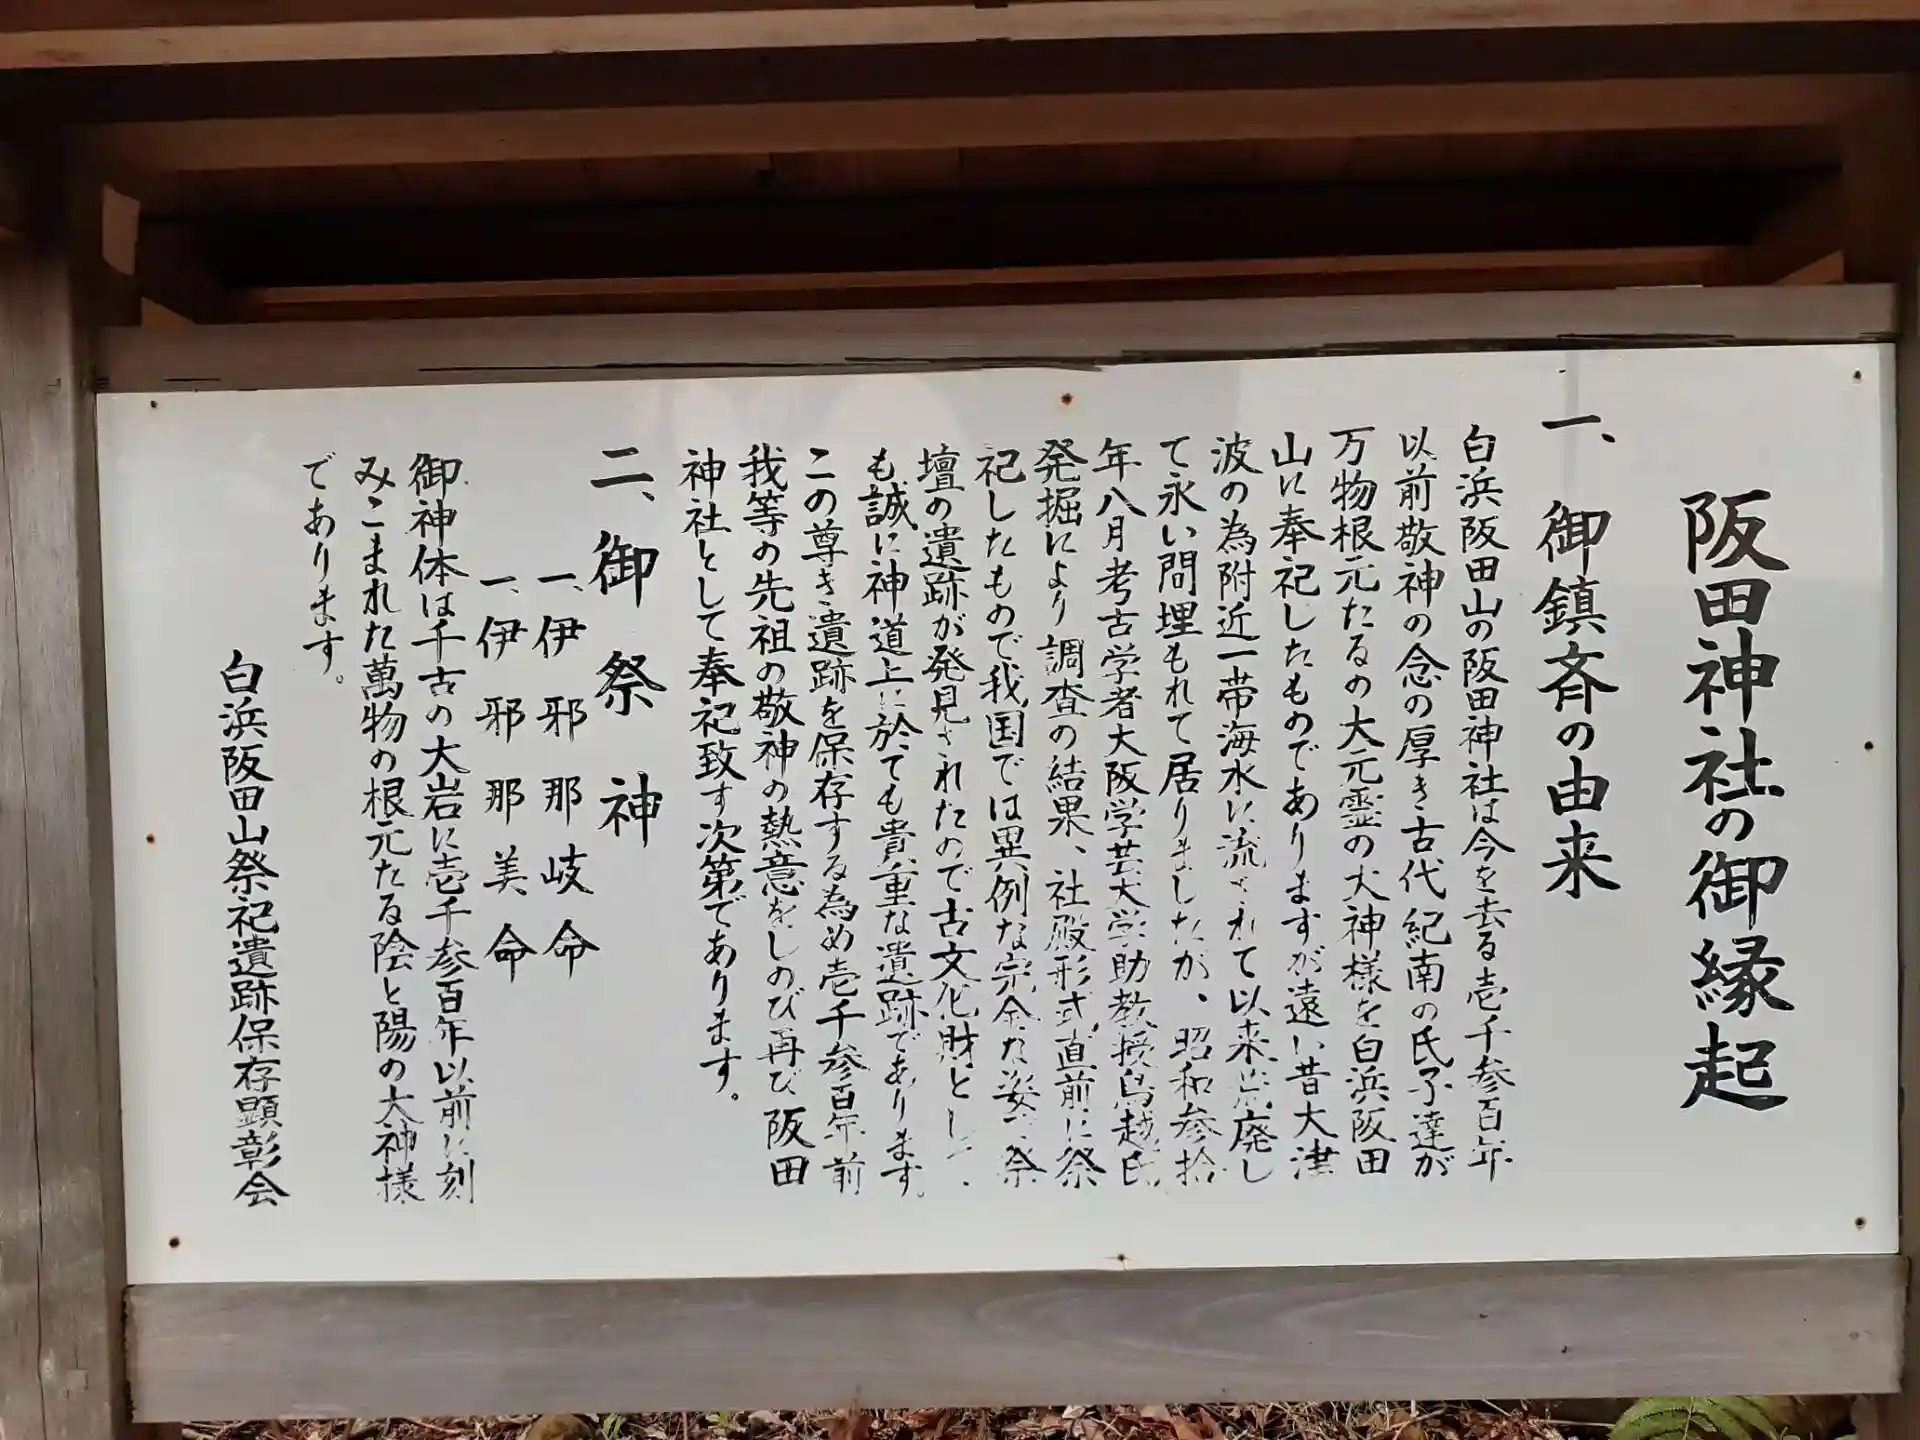 阪田神社の御縁起
一、御鎮斉の由来
白浜阪田山の阪田神社は今を去る壱千参百年
以前敬神の念の厚き古代紀南の氏子達が
万物根元たるの大元霊の大神様を白浜阪田
山に奉祀したものでありますが遠い昔大津
波の為附近一帯海水に流されて以来荒廃し
て永い間埋もれて居りましたが、昭和参拾
年八月考古学者大阪学芸大学助教授鳥越氏
発掘により調査の結果、社殿形式直前に祭
祀したもので我国では異例な完全な姿で祭
壇の遺跡が発見されたので古文化財とし
も誠に神道上に於ても貴重な遺跡であります。
この尊き遺跡を保存する為め壱千参百年前
我等の先祖の敬神の熱意をしのび再び阪田
神社として奉祀致す次第であります。
二、御祭神
一、伊邪那岐命
一、伊邪那美命
御神体は千古の大岩に壱千参百年以前に刻
みこまれた萬物の根元たる陰と陽の大神様
であります。
白浜阪田山祭祀遺跡保存顕彰会